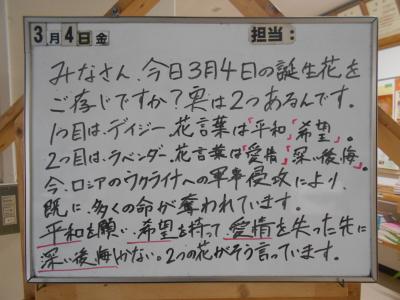 3月4日金 担当:
みなさん、今日3月4日の誕生花を
ご存じですか?実は2つあるんです。
1つ目は、デイジー。花言葉は「平和」「希望」。
2つ目は、ラベンダー。花言葉は「愛情」「深い後悔」。
今、ロシアのウクライナへの軍事侵攻により、
既に、多くの命が奪われています。
平和を願い、希望を持って、愛情を失った先に
深い後悔しかない。2つの花がそう言っています。